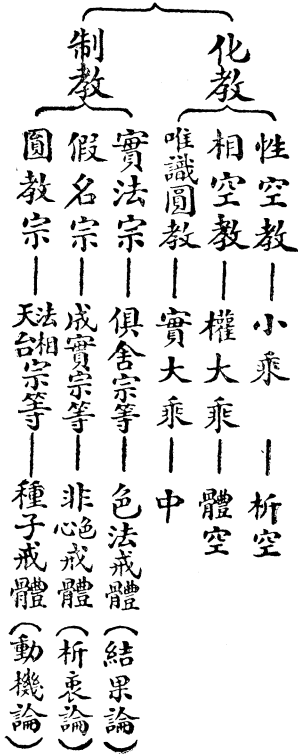 化教
性空教—小乘—析空
相空教—權大乘—體空
唯識圓教—實大乘—中
制教
實法宗—俱舍宗等—色法戒體(結果論)
假名宗—成實宗等—非色非心戒體(析衷論)
圓教宗—法相天台宗等—種子戒體(動機論)